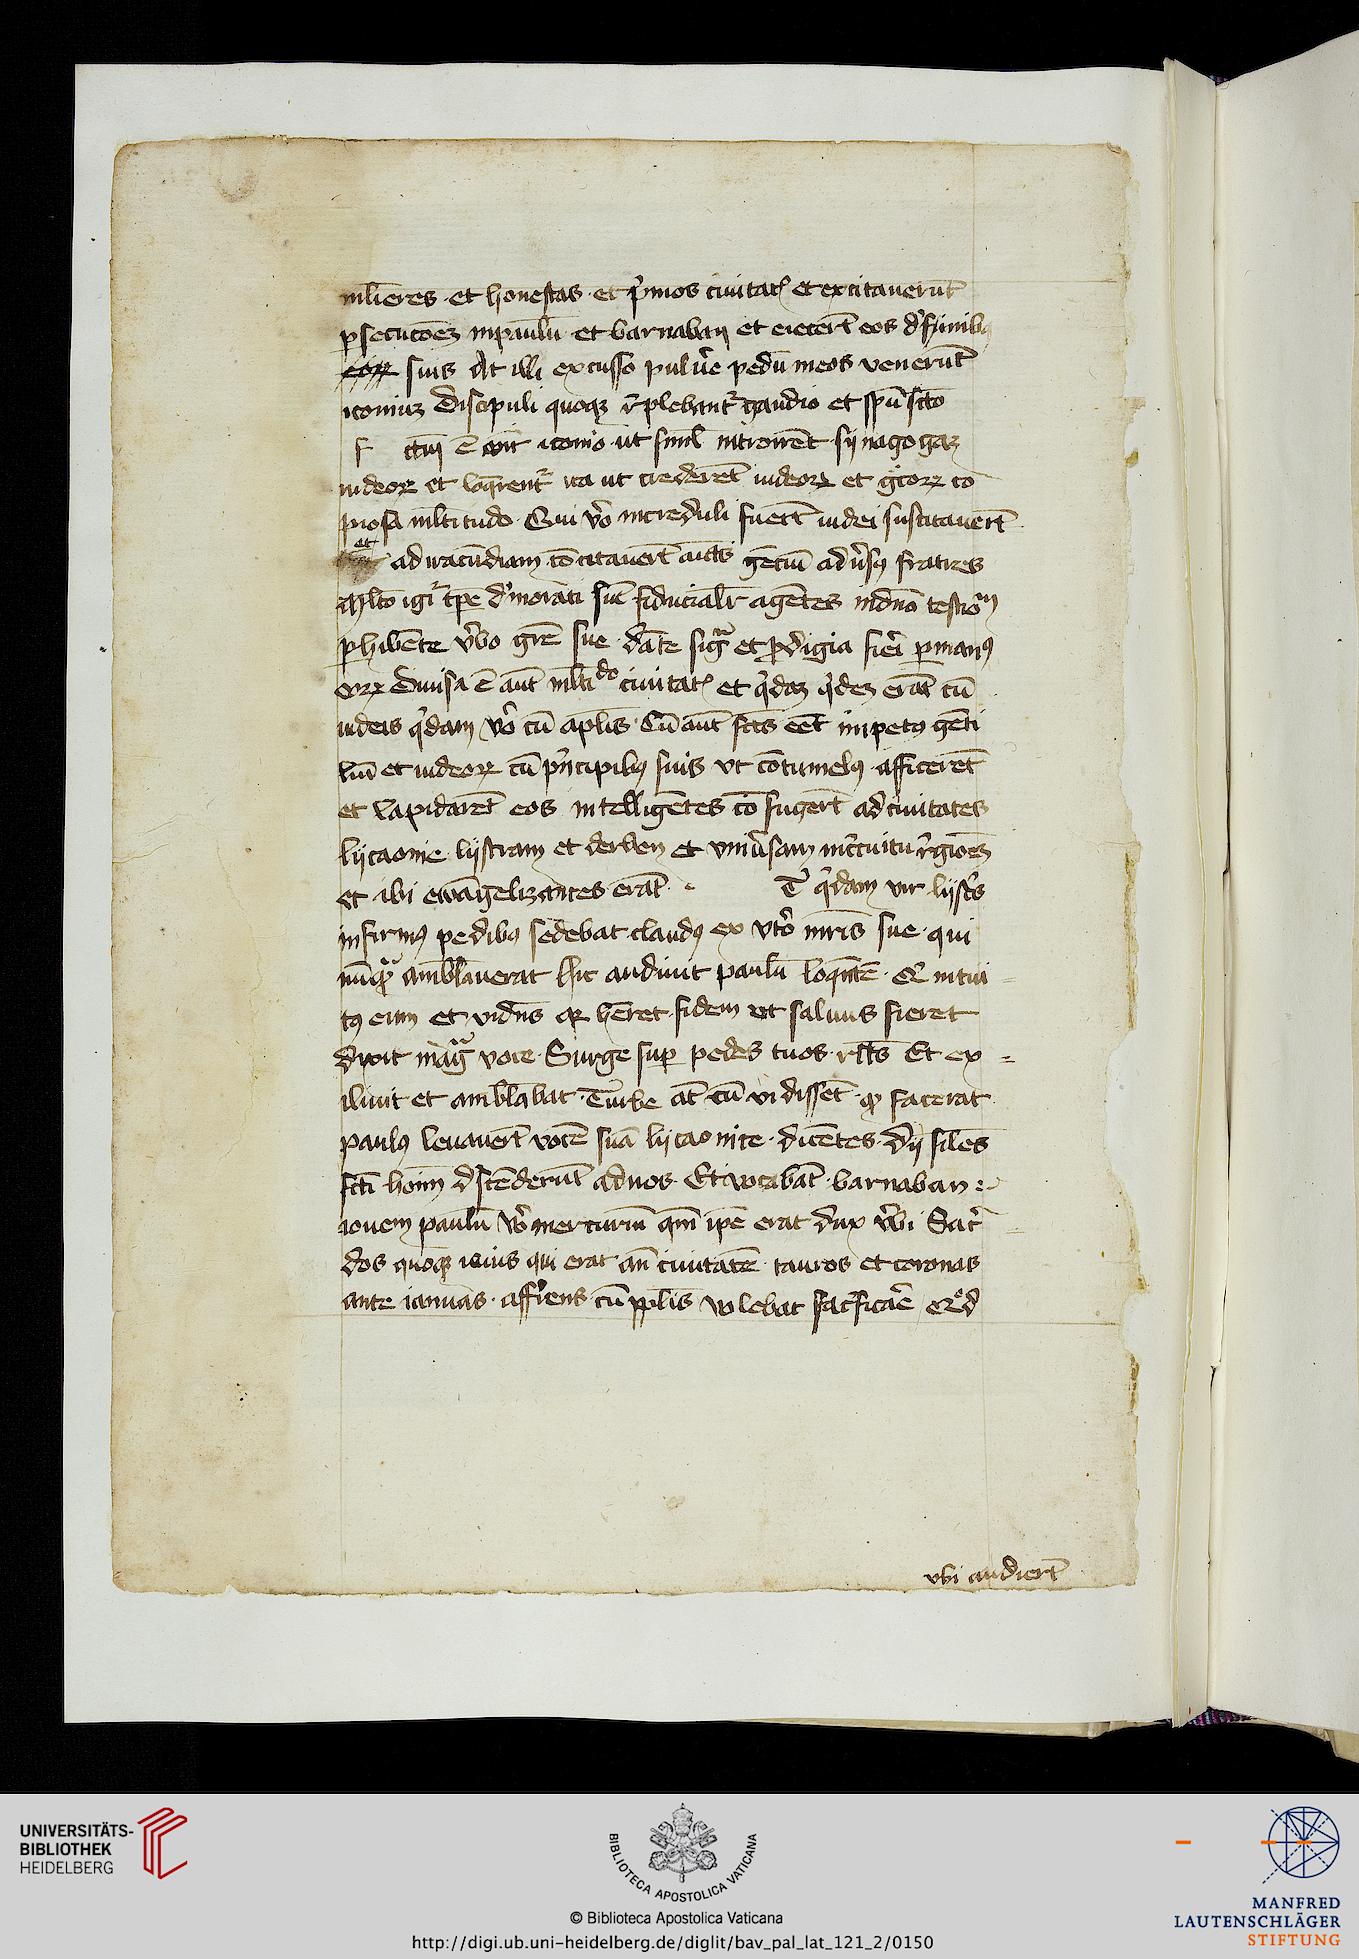 ml̄ieres · et honestas · et p̾mos ciuitatꝭ et excitauerūt
ꝑsecucōeꝫ inpaulū et barnaban et eiecert̄ eos d̾ finibꝯ
suis At illi excusso puluē̾ pedū ineos venerūt
iconiuꝫ Discipuli quoqꝫ r̾plebant᷑ gaudio et spū sc̄to
f ctū ē aūt iconio · ut siml̄ introirēt synagogaꝫ
iudeoꝝ et loq̄rent᷑ ita ut crederēt iudeoꝝ et gͥcoꝝ co
piosa ml̄titudo · Qui v̾o increduli fuert̄ iudei suscitauert̄
et ad iracūdiam cōcitauert̄ aīas gēciū adu̾sꝯ fratres
Ml̄to igͥ tp̄e d̾morati sūt fiducialr̄ agētes indn̄o testiōⁿ
ꝑhibēte v̾bo gr̄e sue · dāte sigᵃ et ꝓdigia fiēi ꝑmanꝯ
eoꝝ Diuisa ē aūt ml̄tiᵈᵒ ciuitatꝭ et q̾daꝫ q̾deꝫ erāt cū
iudeis q̾dam v̾o cū apl̄is · Cū aūt fc̄tꝰ eēt impetꝯ gēti
liū et iudeoꝝ cū p̾ncipibꝯ suis vt cōtumelꝯ afficerēt
et lapidarēt eos intelligētes cō fugert̄ ad ciuitates
lycaonie lystram et derben et vniu̾sam incͥcuitu r̾gioēꝫ
et ibi ewāgelizantes erāt · T̄ q̾dam vir lystͥs
infirmꝯ pedibꝯ sedebat claudꝯ ex vt̾o mr̄is sue · qui
nūqᵃꝫ ambl̄auerat Hic audiuit paulū loq̄ntē · Q̾ intui
tꝯ eum et vidn̄s qꝫ hēret fidem vt saluus fieret
dixit magᵃ voce · Surge suꝑ pedes tuos · rc̄ts Et ex
iliuit et ambl̄abat · Turbe at̄ cū vidissēt · qꝫ fecerat
paulꝯ leuauert̄ vocē suā lycaonice · dicētes · dij sil̄es
fc̄ti hoīm d̾scēderūt adnos · Et vocabāt · barnaban
iouem paulū v̾o mercuriū qm̄ ip̄e erat dux v̾bi Sac̾
dos quoqꝫ iouis qui erat an̄ ciuitatē · tauros et coronas
ante ianuas · affr̾ens · cū ppl̄is volebat sac̾ficaē̾ Qͦd
vbi audiert̄
UNIVERSITÄTS-
BIBLIOTHEK
HEIDELBERG
BIBLIOTECA APOSTOLICA VATICANA
© Biblioteca Apostolica Vaticana
http://digi.ub.uni-heidelberg.de/diglit/bav_pal_lat_121_2/0150
MANFRED
LAUTENSCHLÄGER
STIFTUNG